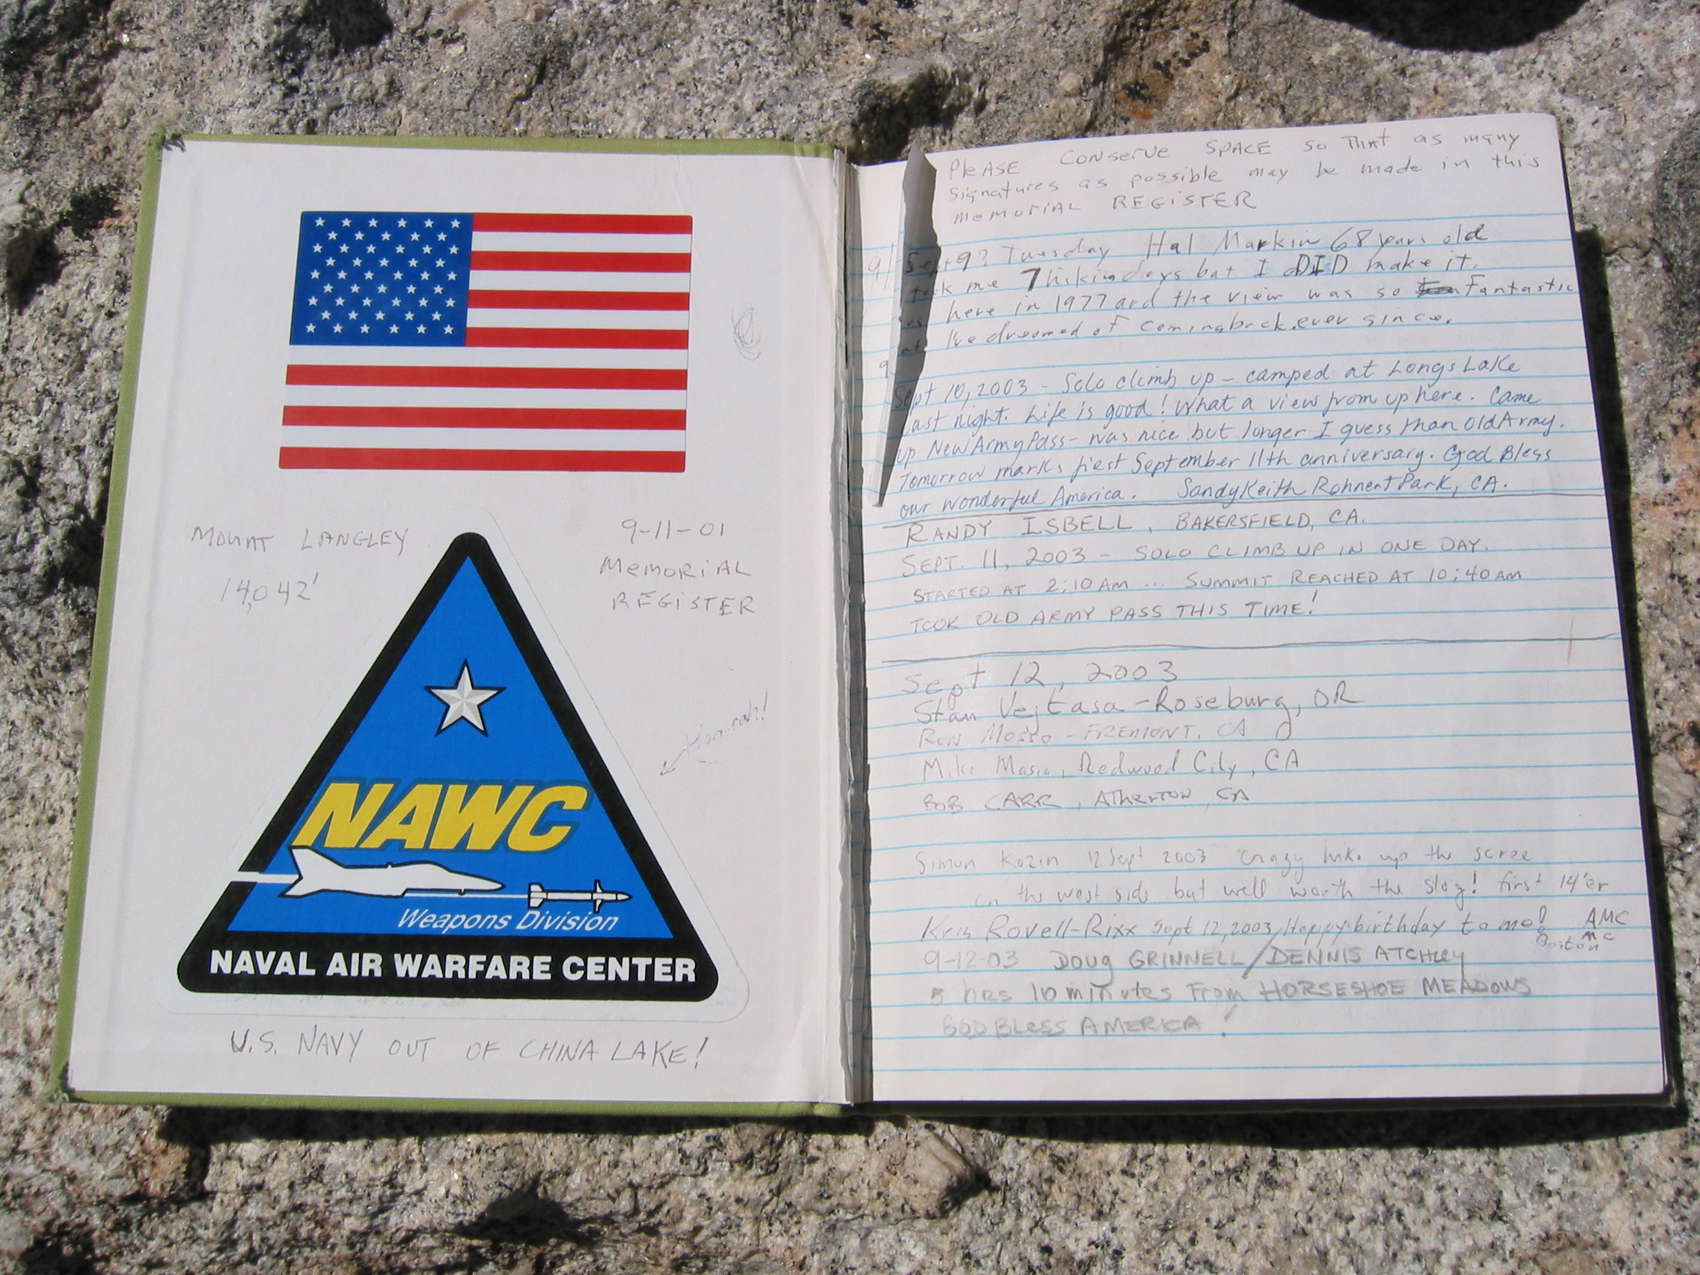 MOUNT LANGLEY
14,042'
9-11-01
MEMORIAL
REGISTER
Hoo-rah!
NAWC
Weapons Division
NAVAL AIR WARFARE CENTER
U.S. NAVY OUT OF CHINA LAKE!
PLEASE CONSERVE SPACE so THAT as many
signatures as possible may be made in this
MEMORIAL REGISTER
Sept 9? Tuesday Hal Markin 68 years old
me 7 hiking days but I DID make it.
here in 1977 and the view was so Fantastic
I've dreamed of coming back ever since.
Sept 10, 2003 - Solo climb up - camped at Longs Lake
last night. Life is good! What a view from up here. Came
up New Army Pass - was nice but longer I guess than Old Army.
Tomorrow marks first September 11th anniversary. God Bless
our wonderful America. Sandy Keith Rohnert Park, CA.
RANDY ISBELL, BAKERSFIELD, CA.
SEPT. 11, 2003 - SOLO CLIMB UP IN ONE DAY.
STARTED AT 2:10 AM ... SUMMIT REACHED AT 10:40 AM
TOOK OLD ARMY PASS THIS TIME!
Sept 12, 2003
Stan Vejtasa - Roseburg, OR
RON - FREMONT, CA
Mike Masia, Redwood City, CA
BOB CARR, ATHERTON, CA
Simon Kozin 12 Sept 2003 Crazy hike up the scree
on the west side but well worth the slog! first 14'er
Kris Rovell-Rixx Sept 12, 2003, Happy birthday to me! AMC
Boston
9-12-03 DOUG GRINNELL / DENNIS ATCHLEY
5 hrs 10 minutes From HORSESHOE MEADOWS
GOD BLESS AMERICA!